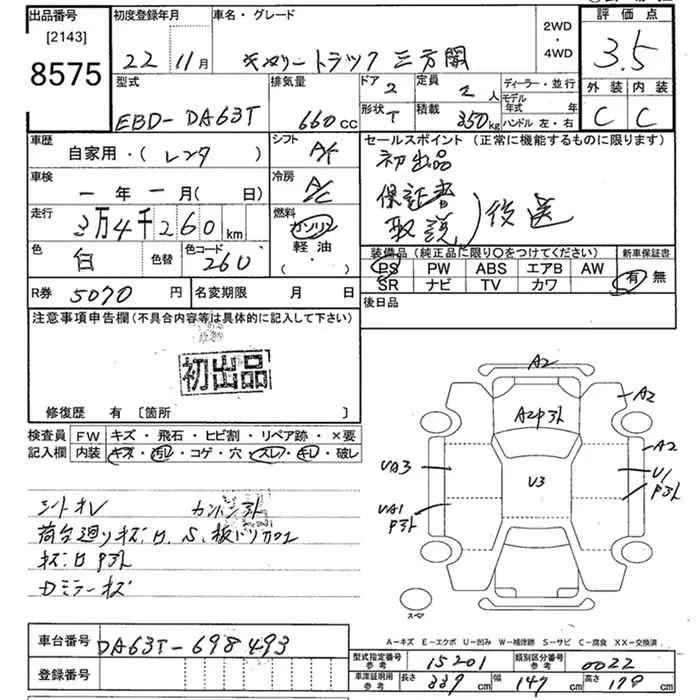 出品番号
[2143]
8575
初度登録年月
22年 11月
車名・グレード
キャリートラック 三方開
2WD
・
4WD
評価点
3.5
外装 内装
C C
型式
EBD-DA63T
排気量
660cc
ドア 2
形状 T
定員 2人
積載 350kg
ディーラー・並行
モデル年式 年
ハンドル 左・右
車歴
自家用・(レンタ)
シフト
冷房
A/C
車検
ー年ー月(日)
走行
3万4千260km
燃料
ガソリン
軽油
・( )
色
白
色替
色コード
260
R券 5070円
名変期限 月 日
セールスポイント (正常に機能するものに限ります)
初出品
保証書
取説 ) 後送
装備品(純正品に限り○をつけてください)
PS PW ABS エアB AW
SR ナビ TV カワ
新車保証書
有 無
後日品
注意事項申告欄(不具合内容等は具体的に記入して下さい)
初出品
修復歴 有 [箇所 ]
検査員記入欄
FW キズ・飛石・ヒビ割・リペア跡・×要
内装 キズ・汚レ・コゲ・穴・スレ・キレ・破レ
シートオレ
キズ
Dミラーキズ
A2
A2
A2
A2P外
UA3
UA1
P外
U3
U1
P外
スペア
A-キズ E-エクボ U-凹み W-補修跡 S-サビ C-腐食 XX-交換済
車台番号 DA63T-698493
登録番号
型式指定番号参考 15201
類別区分番号参考 0022
車庫証明用参考 長さ 339cm 幅 147cm 高さ 179cm